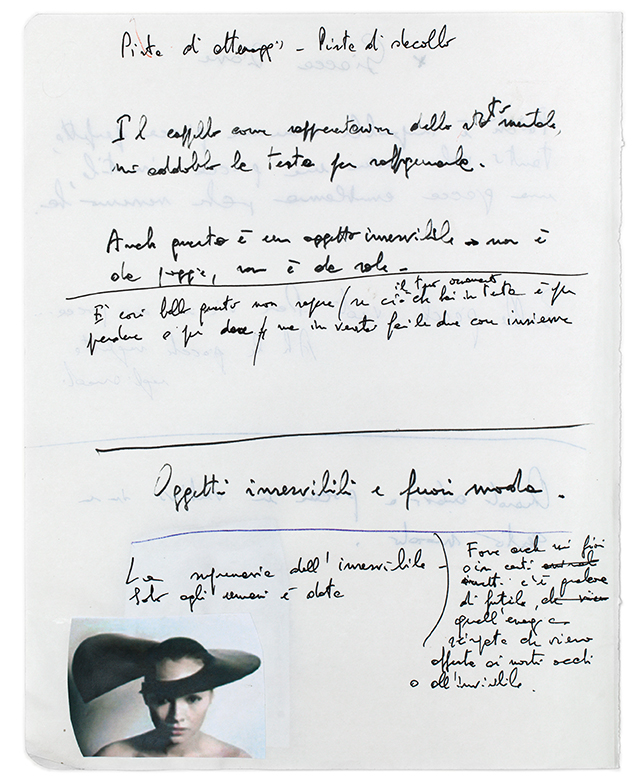 Pista di atterraggio – Pista di decollo
Il cappello come rappresentazione dello stato mentale,
mi addobbo la testa per raffigurarla.
Anche questo è un oggetto inservibile → non è
da pioggia, non è da sole –
il tuo ornamento
È così bello questo non sapere / se ciò che hai in testa è per
perdere o per dare / ma in verità fai le due cose insieme
Oggetti inservibili e fuori moda.
La supremazia dell'inservibile –
Solo agli umani è data
Forse anche nei fiori
o in certi
insetti c'è qualcosa
di futile,
quell'energia
che viene
offerta ai nostri occhi
o all'invisibile.